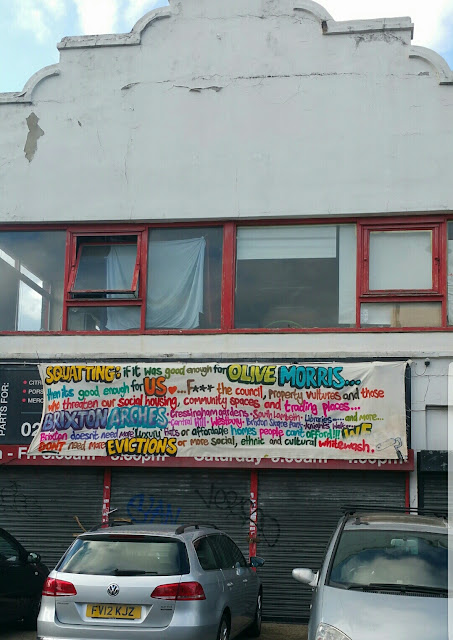 SQUATTING? if it was good enough for OLIVE MORRIS...
then its good enough for US ♥... F*** the council, property vultures and those
who threaten our social housing, community spaces and trading places...
BRIXTON ARCHES, Cressingham gardens, South Lambeth, Libraries..... and more...
Central Hill, Westbury, Brixton Square
Brixton doesn't need more luxury flats or affordable homes people cant afford!!! WE
DON'T need more EVICTIONS or more social, ethnic and cultural whitewash.
PARTS FOR:
CITR
PORS
MERC
02
FV12 KJZ